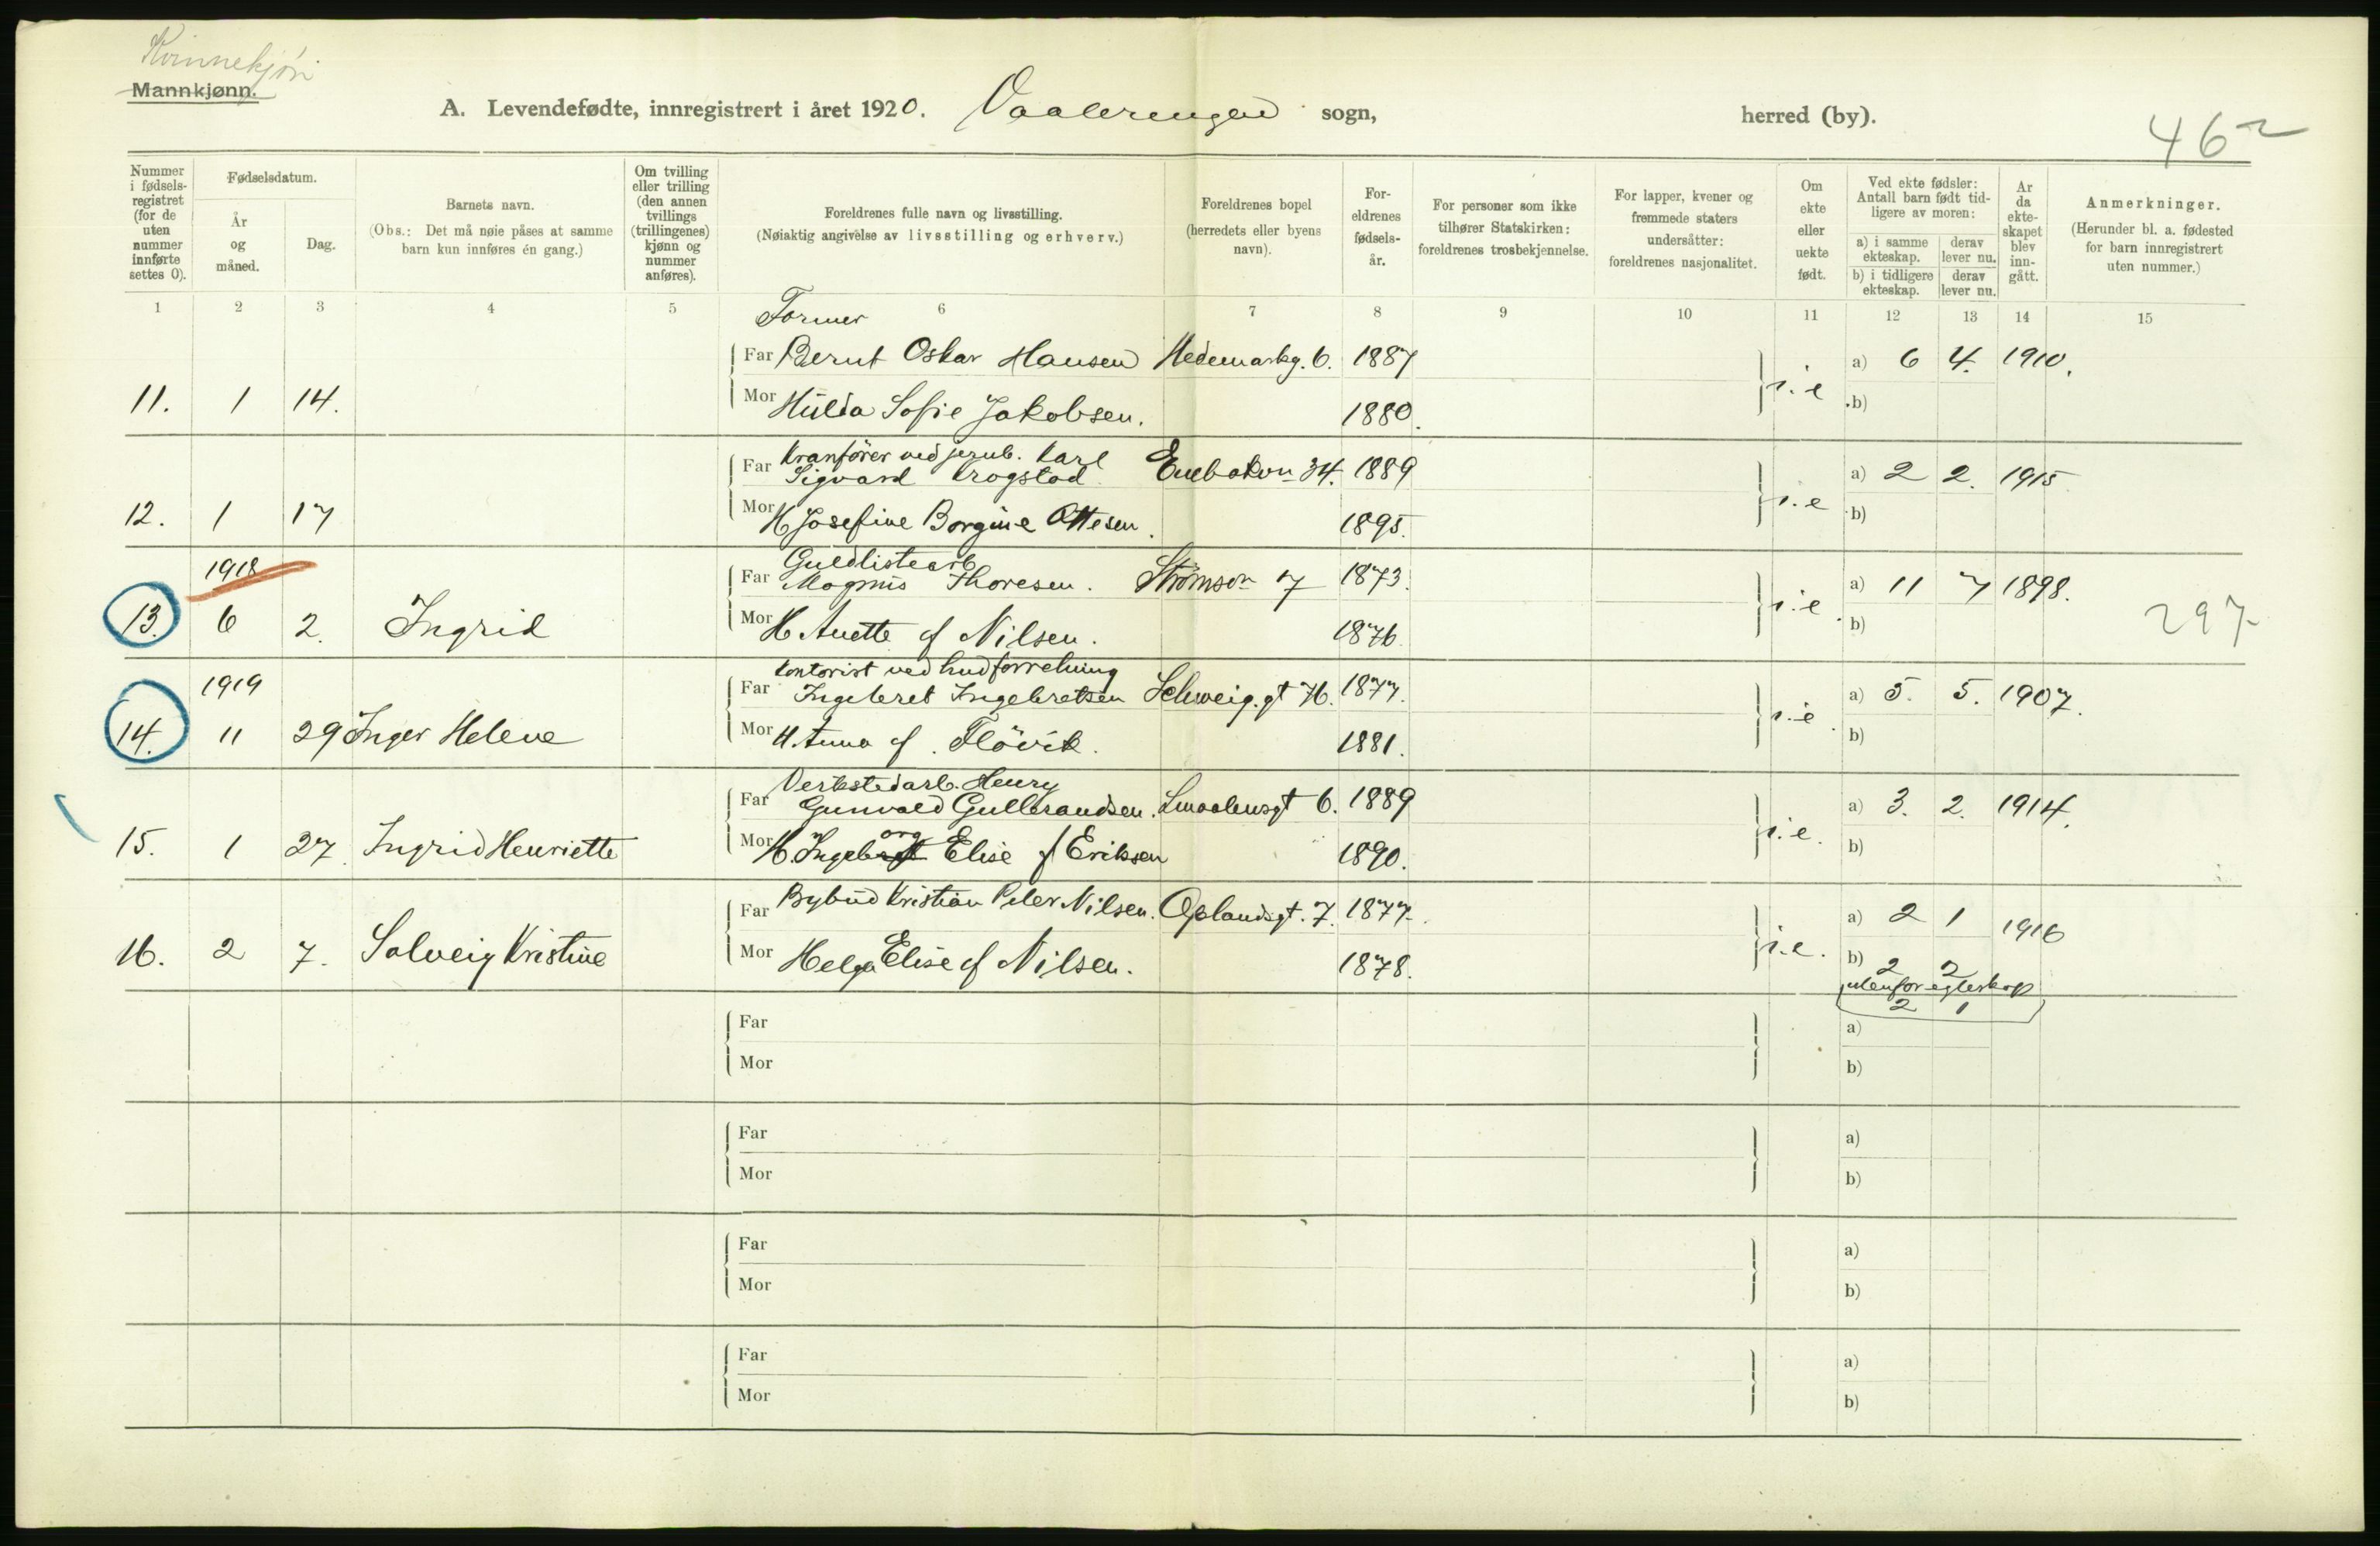 Kvinnekjøn
Mannkjønn.
A. Levendefødte, innregistrert i året 1920. Vaalerengen sogn, herred (by).
462
Nummer i fødsels-registret (for de uten nummer innførte settes 0).
Fødselsdatum.
År og måned.
Dag.
Barnets navn.
(Obs.: Det må nøie påses at samme barn kun innføres én gang.)
Om tvilling eller trilling (den annen tvillings (trillingenes) kjønn og nummer anføres).
Foreldrenes fulle navn og livsstilling.
(Nøiaktig angivelse av livsstilling og erhverv.)
Foreldrenes bopel (herredets eller byens navn).
For-eldrenes fødsels-år.
For personer som ikke tilhører Statskirken: foreldrenes trosbekjennelse.
For lapper, kvener og fremmede staters undersåtter: foreldrenes nasjonalitet.
Om ekte eller uekte født.
Ved ekte fødsler: Antall barn født tid-ligere av moren:
a) i samme ekteskap. derav lever nu.
b) i tidligere ekteskap. derav lever nu.
Ar da ekte-skapet blev inn-gått.
Anmerkninger.
(Herunder bl. a. fødested for barn innregistrert uten nummer.)
1 2 3 4 5 6 7 8 9 10 11 12 13 14 15
Former
Far Bernt Oskar Hansen Hedemarkg. 6. 1887 a) 6 4. 1910.
11. 1 14. Mor Hulda Sofie Jakobsen. 1880. e b)
Kranfører ved jernb. Karl
Far Sigvard Krogstad Enebakvn 34. 1889 a) 2 2. 1915
12. 1 17 Mor H Josefine Borgine Ottesen. 1895. e b)
1918 Guldlistearb
Far Magnus Thoresen. Strømsv 7 1873. a) 11 7 1898.
13. 6 2. Ingrid Mor H Anette f Nilsen. 1876. e b) 297
Kontorist ved hudforretning
1919 Far Ingebret Ingebretsen Schweig.gt 76. 1877. a) 5. 5. 1907.
14. 11 29 Inger Helene Mor H. Anna f. Flövik. 1881. e b)
Verkstedarb. Henry
Far Gunvald Gulbrandsen. Smaalensgt 6. 1889 a) 3. 2. 1914.
org
15. 1 27. Ingrid Henriette Mor H. Ingebrgt Elise f Eriksen 1890. e. b)
Far Bybud Kristian Peder Nilsen. Oplandsgt. 7. 1877. a) 2 1 1916
16. 2 7. Solveig Kristine Mor Helga Elise f Nilsen. 1878. e. b) 2 2
utenfor egteskap
2 1
Far a)
Mor b)
Far a)
Mor b)
Far a)
Mor b)
Far a)
Mor b)